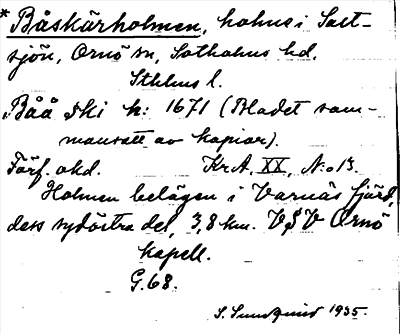 * Båskärholmen, holme i Salt-
sjön, Ornö sn, Sotholms hd.
Sthlms l.
Båå Ski h: 1671 (Bladet sam-
mansatt av kopior).
Förf. okd. Kr.A. XX, N:o 13.
Holmen belägen i Varnäs fjärd,
dess sydöstra del, 3,8 km. VSV Ornö
kapell.
G.68.
S. Sundquist 1935.